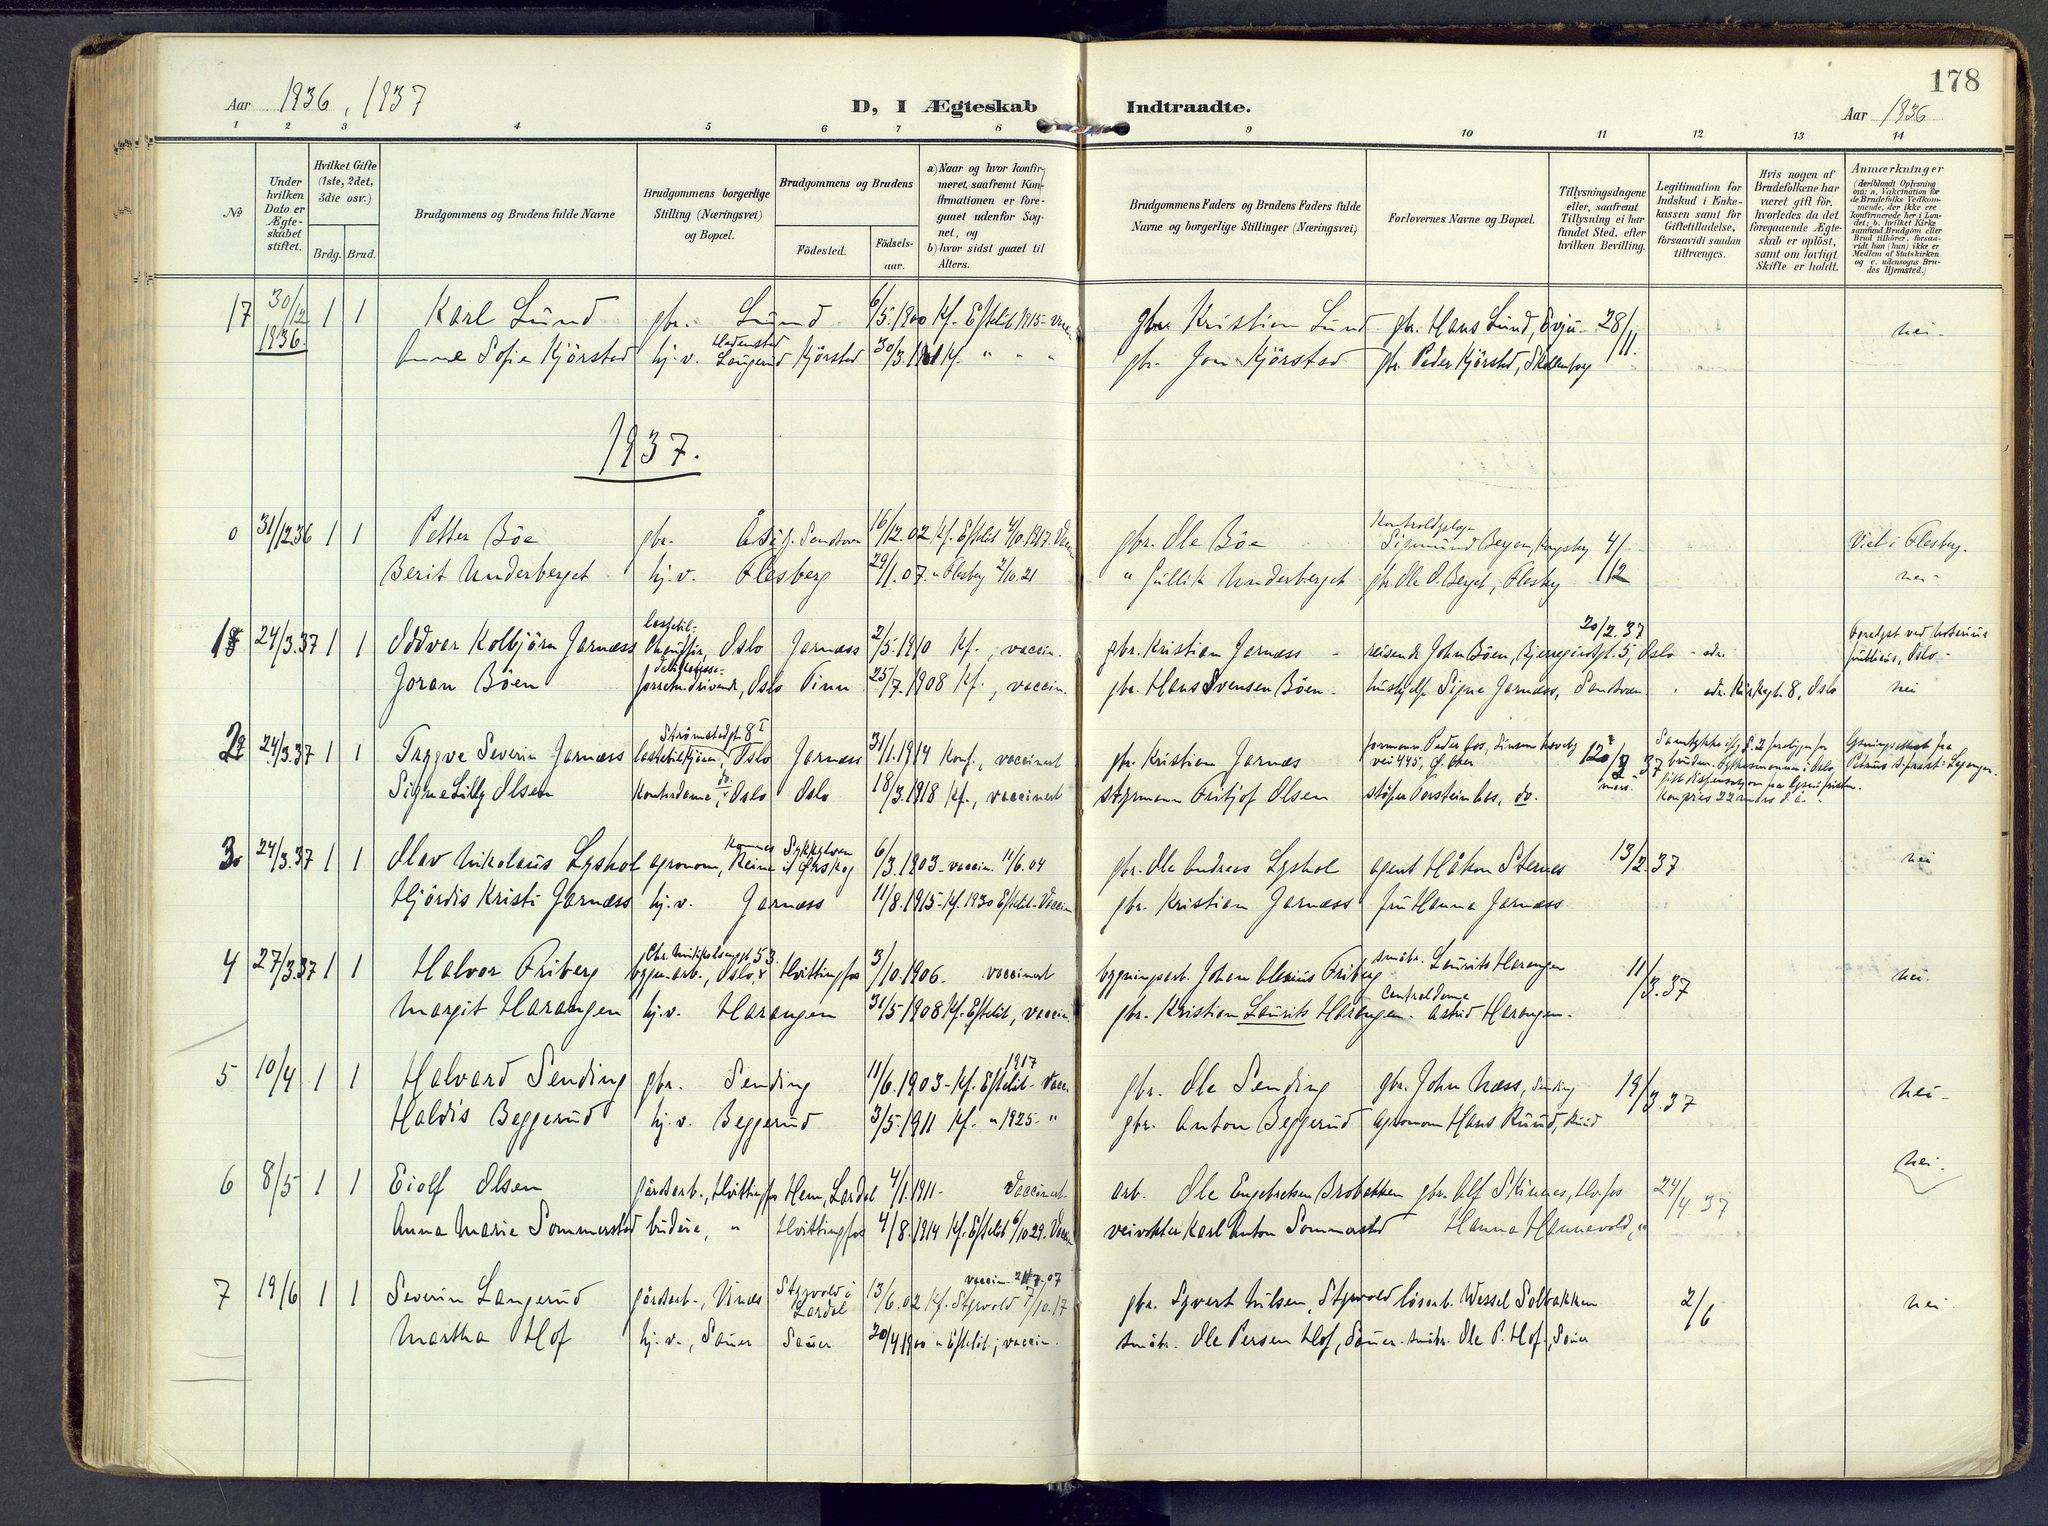 178
Aar 1936, 1937
D, I Ægteskab Indtraadte.
Aar 1936
1 2 3 4 5 6 7 8 9 10 11 12 13 14
No
Under hvilken Dato er Ægteskabet stiftet.
Hvilket Gifte (1ste, 2det, 3die osv.)
Brdg. Brud.
Brudgommens og Brudens fulde Navne
Brudgommens borgerlige Stilling (Næringsvei) og Bopæl.
Brudgommens og Brudens
Fødested. Fødselsaar.
a) Naar og hvor konfirmeret, saafremt Konfirmationen er foregaaet udenfor Sognet, og
b) hvor sidst gaaet til Alters.
Brudgommens Faders og Brudens Faders fulde Navne og borgerlige Stillinger (Næringsvei)
Forlovernes Navne og Bopæl.
Tillysningsdagene eller, saafremt Tillysning ei har fundet Sted, efter hvilken Bevilling.
Legitimation for Indskud i Enkekassen samt for Giftetilladelse, forsaavidt saadan tiltrænges.
Hvis nogen af Brudefolkene har været gift før, hvorledes da det foregaaende Ægteskab er opløst, samt om lovligt Skifte er holdt.
Anmærkninger
(deriblandt Oplysning om: a. Vakcination for de Brudefolks Vedkommende, der ikke ere konfirmerede her i Landet; b. hvilket Kirkesamfund Brudgom eller Brud tilhører, forsaavidt han (hun) ikke er Medlem af Statskirken og c. udensogns Brudes Hjemsted.)
17 30/12 1936. 1 1 Karl Lund gbr. Lund 6/5.1900 Kf. Efteløt 1915 - Vacc gbr Kristian Lund gbr. Hans Lund, Evju 28/11. nei -
Anne Sofie Kjørstad hj. v. Kjørstad 30/3. Kf. " " " gbr. Jon Kjørstad gbr Peder Kjørstad, Skollenborg
1937.
0 31/12.36 1 1 Petter Böe gbr. 16/12.02 Kf. Efteløt 1917. Vacc gbr. Ole Böe Sigmund Bergen, Kongsberg 4/12 Viet i Flesberg.
Berit Underberget hj. v. Flesberg 29/1.07. " Flesberg 2/10.21 " Gullik Underberget gbr Ole O. Berget, Flesberg nei -
1 24/3.37 1 1 Oddvar Kolbjörn Jarnæss Oslo Jarnæss 2/5.1910 Kf., vaccin. gbr. Kristian Jarnæss - reisende John Böen, 5, Oslo 20/2.37
Joran Böen Oslo Tinn 25/7.1908 Kf., vaccin. gbr. Hans Svensen Böen. hushjelp Signe Jarnæss, Sandsvær adr. Kirkegt. 8, Oslo nei
2 24/3.37 1 1 Trygve Severin Jarnæss Strömstedgt. 8 I Oslo Jarnæss 31/1.1914 Konf., vaccinert gbr. Kristian Jarnæs formann Peder
Signe Lilly Olsen Kontordame, Oslo Oslo 18/3.1918 Kf., vaccinert styrmann Fritjof Olsen støper Torstein do.
3 24/3.37 1 1 Olav Nikolaus Lyshol agronom, Ørskog 6/3.1903. vaccin. 11/6.04 gbr. Ole Andreas Lyshol agent Håkon Stemes 13/2.37 nei
Hjördis Kristi Jarnæss hj. v. Jarnæss 11/8.1915 - Kf. 1930 Efteløt - Vaccin gbr. Kristian Jarnæss fru Hanna Jarnæss
4 27/3.37 1 1 Halvor Friberg bygn.arb., Oslo. Hvittingfos 3/10.1906. vaccinert bygningsarb. Johan Friberg småbr. Laurits Harangen 11/3.37 nei.
Margit Harangen hj. v. Harangen 31/5.1908 Kf. Efteløt, vaccin. gbr. Kristian Laurits Harangen. Astrid Harangen.
5 10/4 1 1 Halvard Sending gbr. Sending 11/6.1903 - Kf. Efteløt 1917 - Vacc. gbr. Ole Sending gbr. John Næss, Sending 19/3.37 nei -
Haldis Beggerud hj. v. Beggerud 3/5.1911 Kf. " 1925 - " gbr. Anton Beggerud agronom Hans Ruud, Ruud
6 8/5 1 1 Eiolf Olsen gårdsarb., Hvittingfos Hem, Lardal 4/1.1911 - Vaccinert. arb. Ole Engebretsen Brobekken gbr. Alf Skinnes, Hv.fos 24/4 37 nei.
Anna Marie Sommerstad budeie, " Hvittingfos 4/8.1914 Kf. Efteløt 6/10.29. Vacc veivokter Karl Anton Sommerstad Hanna Hannevold, "
7 19/6 1 1 Severin Langerud gårdsarb., Vinæs Styrvold i Lardal 13/6.02 Kf. Styrvold 7/10.17 gbr. Syvert Nilsen, Styrvold løsarb. Wessel Solbakken 2/6 nei
Martha Hof hj. v., Sauer Sauer 20/4 1900 " Efteløt; vaccin. småbr. Ole Persen Hof, Sauer. småbr. Ole P. Hof, Sauer